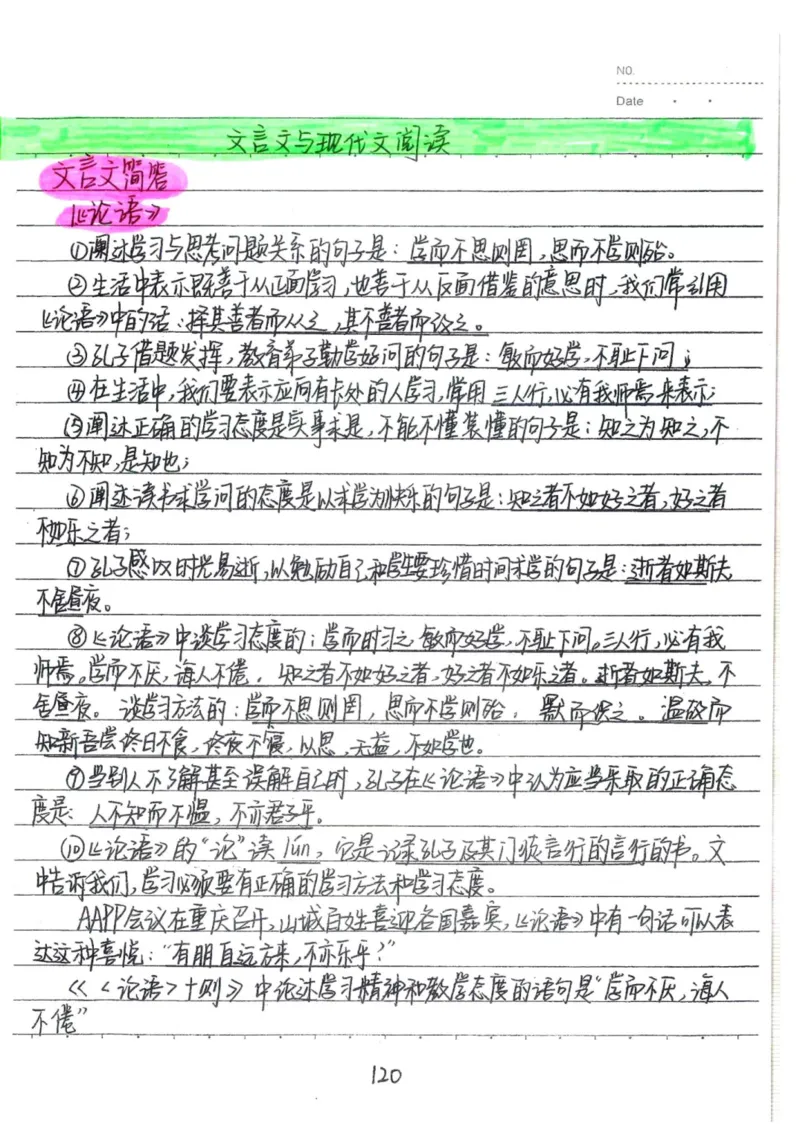 NO.
Date
文言文与现代文阅读
文言文简答
《论语》
①阐述学习与思考问题关系的句子是：学而不思则罔，思而不学则殆。
②生活中表示既善于从正面学习，也善于从反面借鉴的意思时，我们常引用
《论语》中的话：择其善者而从之，其不善者而改之。
③孔子借题发挥，教育弟子勤学好问的句子是：敏而好学，不耻下问；
④在生活中，我们要表示应向有长处的人学习，常用三人行，必有我师焉来表示；
⑤阐述正确的学习态度是实事求是，不能不懂装懂的句子是：知之为知之，不
知为不知，是知也；
⑥阐述读书求学问的态度是以求学为快乐的句子是：知之者不如好之者，好之者
不如乐之者；
⑦孔子感叹时光易逝，以勉励自己和学生要珍惜时间求学的句子是：逝者如斯夫
不舍昼夜。
⑧《论语》中谈学习态度的：学而时习之 敏而好学，不耻下问。三人行，必有我
师焉。学而不厌，诲人不倦。知之者不如好之者，好之者不如乐之者。逝者如斯夫，不
舍昼夜。谈学习方法的：学而不思则罔，思而不学则殆。默而识之。温故而
知新吾尝终日不食，终夜不寝，以思，无益，不如学也。
⑨当别人不了解甚至误解自己时，孔子在《论语》中认为应当采取的正确态
度是：人不知而不愠，不亦君子乎。
⑩《论语》的“论”读lún，它是记录孔子及其门徒言行的言行的书。文
中告诉我们，学习必须要有正确的学习方法和学习态度。
AAPP会议在重庆召开，山城百姓喜迎各国嘉宾，《论语》中有一句话可以表
达这种喜悦：“有朋自远方来，不亦乐乎？”
《〈论语〉十则》中论述学习精神和教学态度的语句是“学而不厌，诲人
不倦”
120